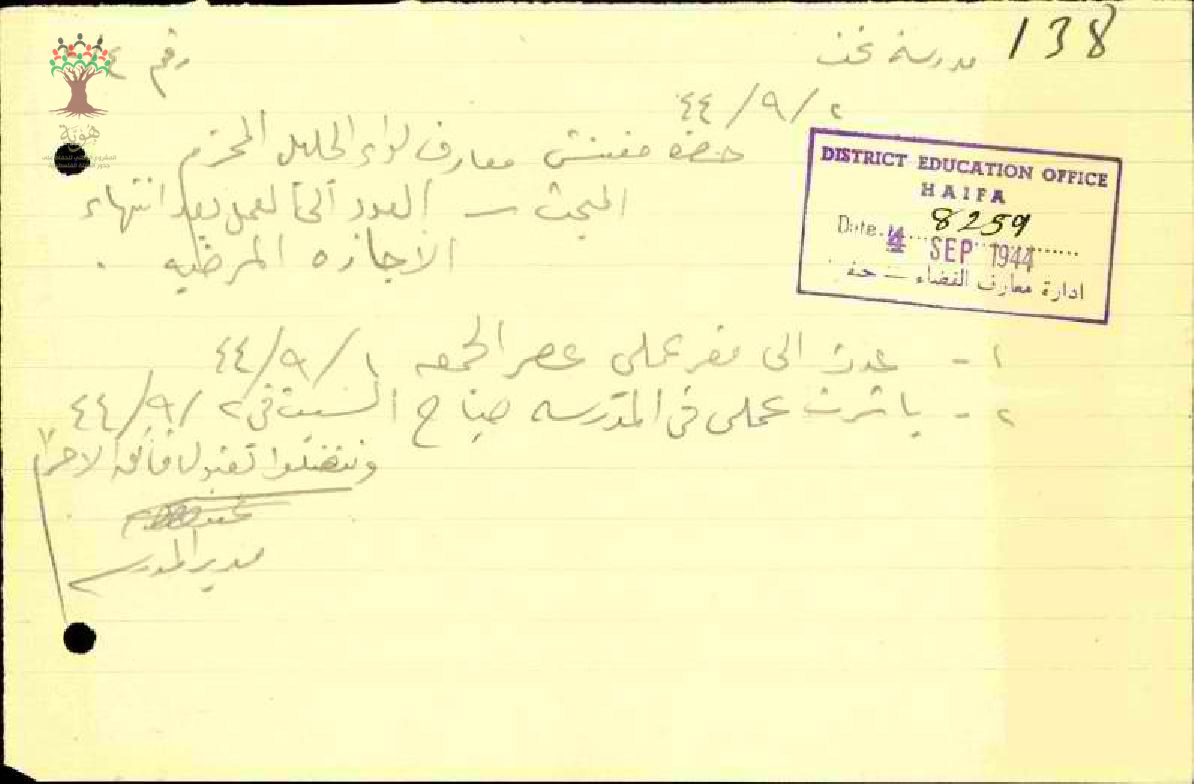 138
مدرسة
رقم ٤
٤٤/٩/٢
حضرة مفتش معارف لواء الجليل المحترم
المبحث - العودة الى العمل بعد انتهاء
الاجازه المرضيه .
DISTRICT EDUCATION OFFICE
HAIFA
Date. 8259
4 SEP 1944
ادارة معارف القضاء - حيفا
١ - عدت الى مقر عملي عصر الجمعه ٤٤/٩/١
٢ - باشرت عملي في المدرسه صباح السبت في ٤٤/٩/٢
وتفضلوا بقبول فائق الاحترام
مدير المدرسه
هُويّة